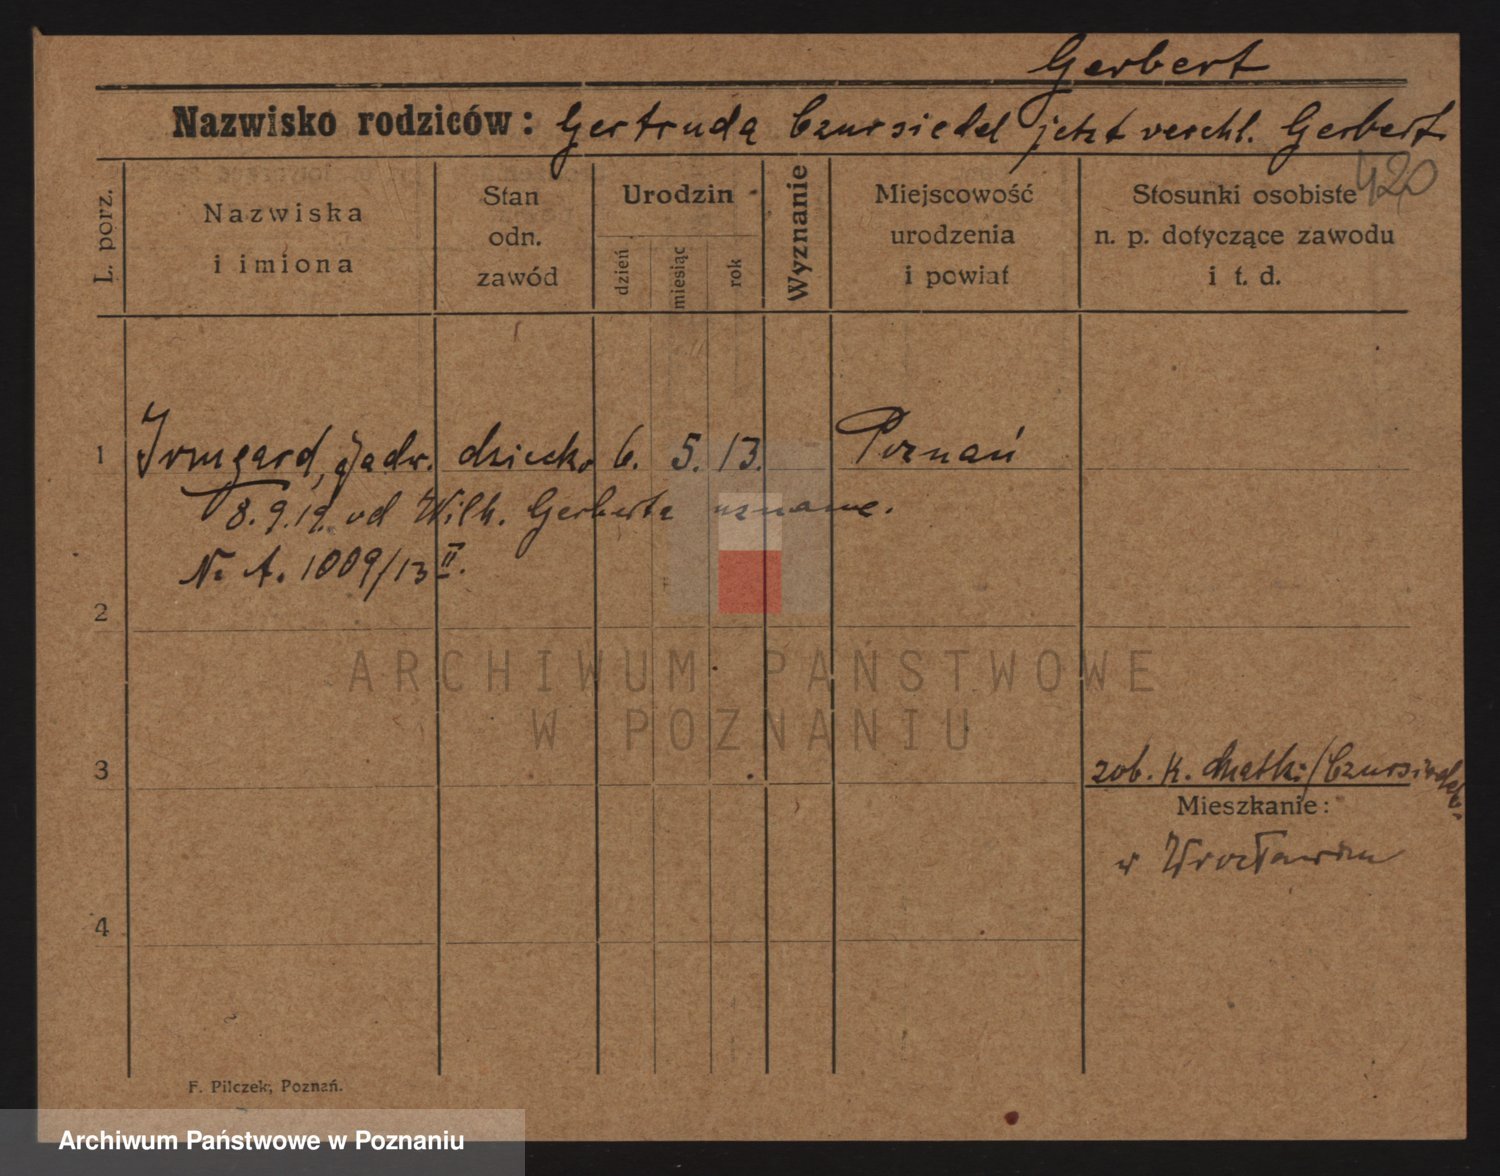 Gerbert
Nazwisko rodziców: Gertruda Czursiedel jetzt verehl. Gerbert
420
L. porz.
Nazwiska
i imiona
Stan
odn.
zawód
Urodzin
dzień
miesiąc
rok
Wyznanie
Miejscowość
urodzenia
i powiat
Stosunki osobiste
n. p. dotyczące zawodu
i t. d.
1 Irmgard, Jadw. dziecko 6. 5. 13. Poznań
8.9.19. od Wilh. Gerberta uznane.
Nr A. 1009/13 II.
2
3
zob. k. matki / Czursiedel
Mieszkanie:
w Wrocławiu
4
F. Pilczek, Poznań.
ARCHIWUM PAŃSTWOWE
W POZNANIU
Archiwum Państwowe w Poznaniu